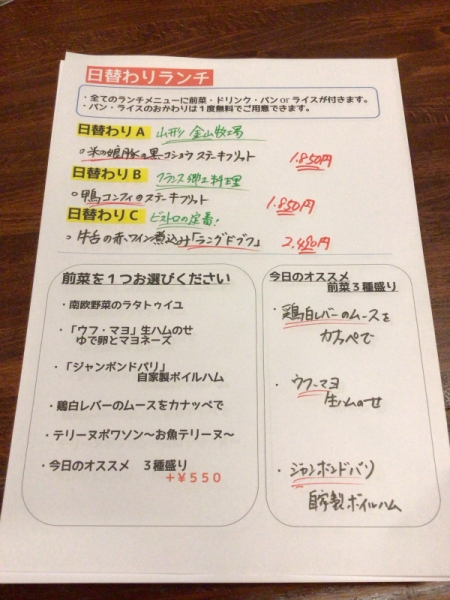 日替わりランチ
・全てのランチメニューに前菜・ドリンク・パン or ライスが付きます。
・パン・ライスのおかわりは１度無料でご用意できます。
日替わり A 山形 金山牧場
○米の娘豚の黒コショウステーキフリット 1.850円
日替わり B フランス郷土料理
○鴨コンフィのステキフリット 1.850円
日替わり C ビストロの定番!
・牛舌の赤ワイン煮込み「ラングドブフ」 2.480円
前菜を１つお選びください
・南欧野菜のラタトゥイユ
・「ウフ・マヨ」生ハムのせ
ゆで卵とマヨネーズ
・「ジャンボンドパリ」
自家製ボイルハム
・鶏白レバーのムースをカナッペで
・テリーヌポワソン～お魚テリーヌ～
・今日のオススメ ３種盛り
＋￥５５０
今日のオススメ
前菜３種盛り
・鶏白レバーのムースを
カナッペで
・ウフ・マヨ
生ハムのせ
・ジャンボンドパリ
自家製ボイルハム